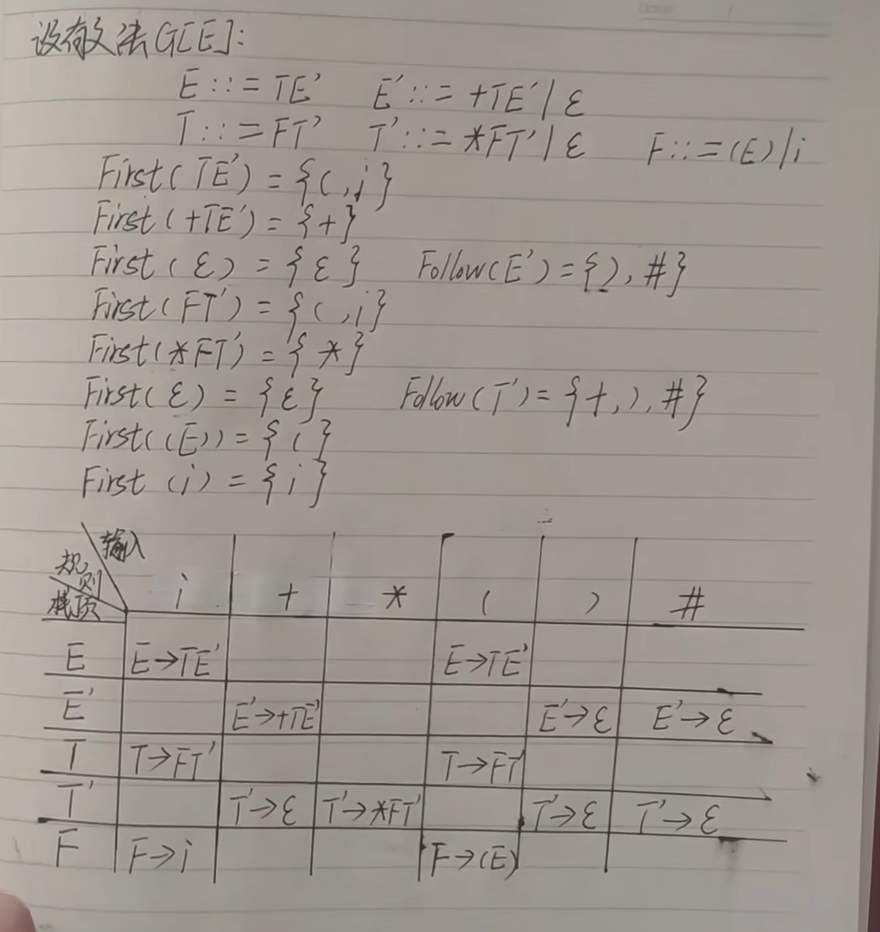 设有文法G[E]:
E::=TE' E'::=+TE'|ε
T::=FT' T'::=*FT'|ε F::=(E)|i
First(TE')={(,i}
First(+TE')={+}
First(ε)={ε} Follow(E')={),#}
First(FT')={(,i}
First(*FT')={*}
First(ε)={ε} Follow(T')={+,),#}
First((E))={(}
First(i)={i}
输入
规则
栈顶
i + * ( ) #
E E→TE' E→TE'
E' E'→+TE' E'→ε E'→ε
T T→FT' T→FT'
T' T'→ε T'→*FT' T'→ε T'→ε
F F→i F→(E)